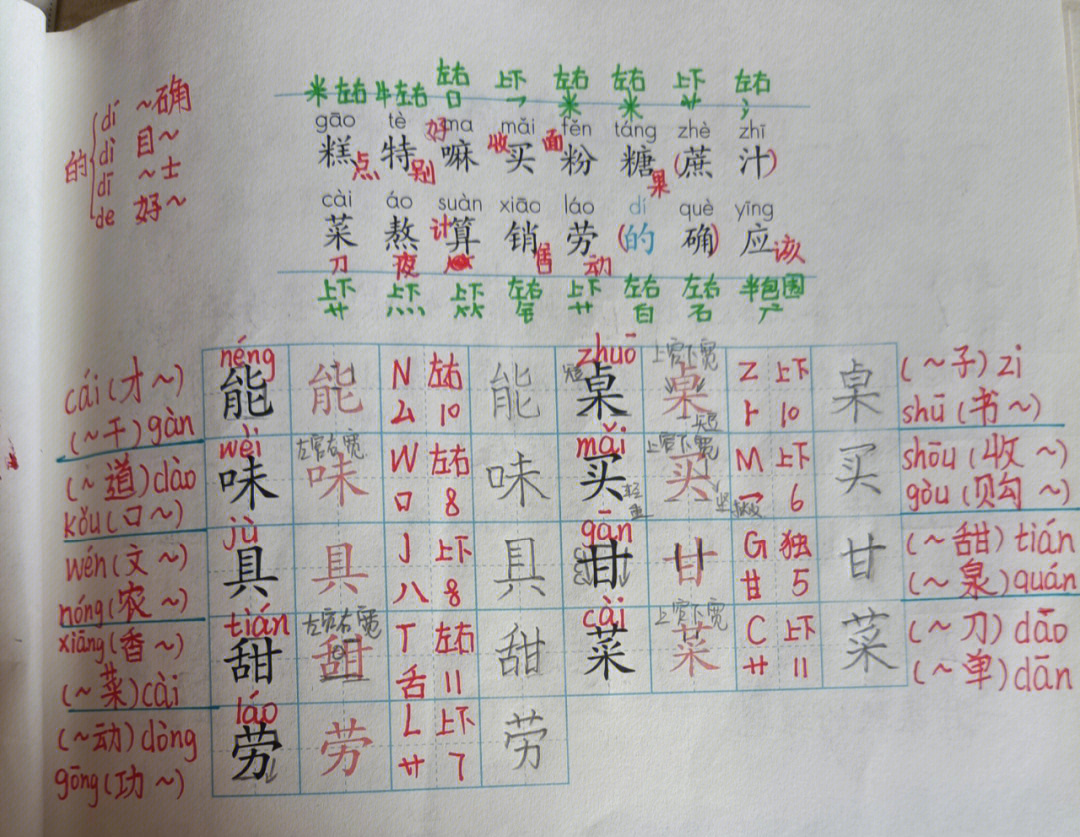 的 dí ~确
dì 目~
dī ~士
de 好~
米 左右 牛 左右 左右 上下 左右 左右 上下 左右
口 乛 米 米 艹 氵
gāo tè ma mǎi fěn táng zhè zhī
糕点 特别 好嘛 收买 面粉 糖果 (蔗 汁)
cài áo suàn xiāo láo dí què yīng
菜刀 熬夜 计算 销售 劳动 (的 确) 应该
上下 上下 上下 左右 上下 左右 左右 半包围
艹 灬 ⺮ 钅 艹 白 石 广
néng zhuō 上窄下宽
cái(才~) 能 能 N 左右 能 短 桌 桌 Z 上下 桌 (~子)zi
(~干)gàn 厶 10 卜 10 shū(书~)
wèi 左窄右宽 mǎi 上窄下宽
(~道)dào 味 味 W 左右 味 买 买 M 上下 买 shōu(收~)
kǒu(口~) 口 8 乛 6 gòu(购~)
jù gān
wén(文~) 具 具 J 上下 具 甘 甘 G 独 甘 (~甜)tián
nóng(农~) 八 8 甘 5 (~泉)quán
tián 左窄右宽 cài 上窄下宽
xiāng(香~) 甜 甜 T 左右 甜 菜 菜 C 上下 菜 (~刀)dāo
(~菜)cài 舌 11 艹 11 (~单)dān
láo
(~动)dòng 劳 劳 L 上下 劳
gōng(功~) 艹 7